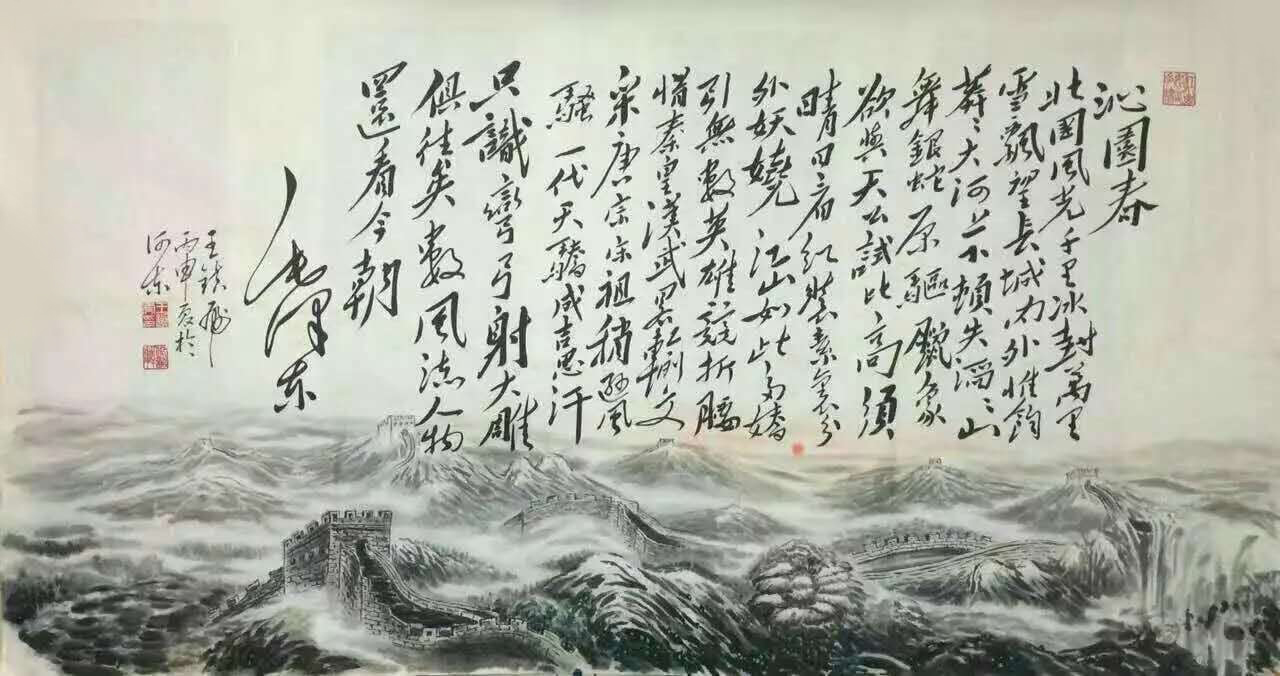 沁園春
北國風光千里冰封萬里
雪飄望長城內外惟餘
莽々大河上下頓失滔々山
舞銀蛇原驅臘象
欲與天公試比高須
晴日看紅裝素裹分
外妖嬈江山如此多嬌
引無數英雄競折腰
惜秦皇漢武畧輸文
采唐宗宋祖稍遜風
騷一代天驕成吉思汗
只識彎弓射大雕
俱往矣數風流人物
還看今朝
毛澤東
王
丙申夏於
河东